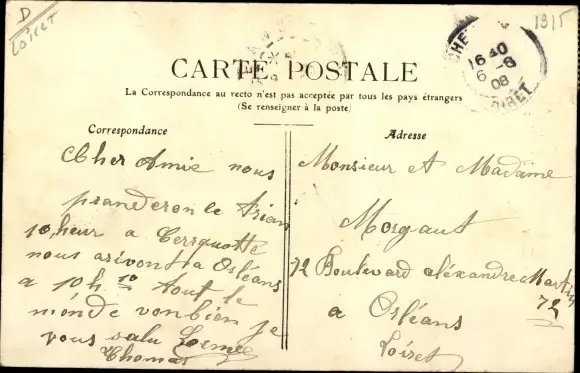 D
Loiret
1915
CHE
16 40
6 -8
08
LOIRET
CARTE POSTALE
La Correspondance au recto n'est pas acceptée par tous les pays étrangers
(Se renseigner à la poste)
Correspondance
Cher Amie nous
pranderon le Trian
10, heur a Cerquotte
nous arivont a Orléans
a 10h. 10 Tout le
monde von bien je
vous salu
Thomas
Adresse
Monsieur et Madame
Morgaut
72 Boulevard aléxandre Martin
72
a Orléans
Loiret